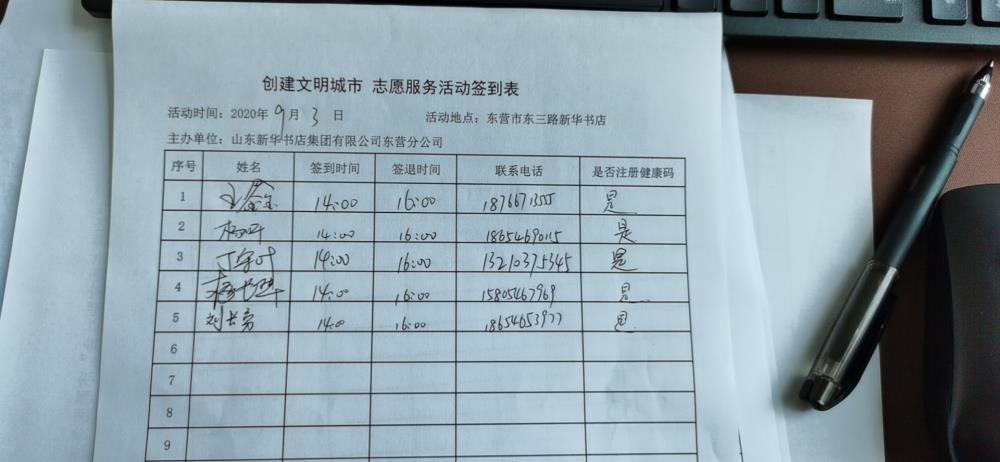 创建文明城市 志愿服务活动签到表
活动时间：2020年 9月 3 日 活动地点：东营市东三路新华书店
主办单位：山东新华书店集团有限公司东营分公司
序号 姓名 签到时间 签退时间 联系电话 是否注册健康码
1 14:00 16:00 是
2 14:00 16:00 18654690115 是
3 14:00 16:00 13210375345 是
4 14:00 16:00 15805467969 是
5 刘长亮 14:00 16:00 18654653977 是
6
7
8
9